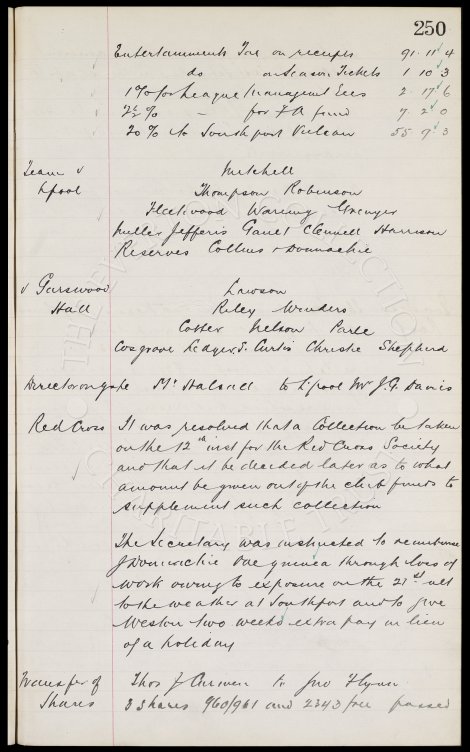 250
Entertainments Tax on receipts 91 11 4
do on Season Tickets 1 10 3
1% for League Managemt Exes 2 17 6
2½ % - for FA fund 7 2 0
20 % to Southport Vulcan 55 9 3
Team v Mitchell
Lpool Thompson Robinson
Fleetwood Waring Grenyer
Miller Jefferis Gault Clennell Harrison
Reserves Collins & Donnachie
v Garswood Lawson
Hall Riley Wunders
Cotter Nelson
Cosgrave Leager, S. Curtis Christie Shepherd
Director on gate Mr Halsall to Lpool Mr J.G. Davies
Red Cross It was resolved that a Collection be taken
on the 12th inst for the Red Cross Society
and that it be decided later as to what
amount be given out of the club funds to
supplement such collection
The Secretary was instructed to reimburse
J Donnachie One guinea through loss of
work owing to exposure on the 21st ult
to the weather at Southport and to give
Weston two weeks extra pay in lieu
of a holiday
Transfer of Thos J Curwen to Jno Flynn
Shares 3 shares 960/961 and 2343 free passed